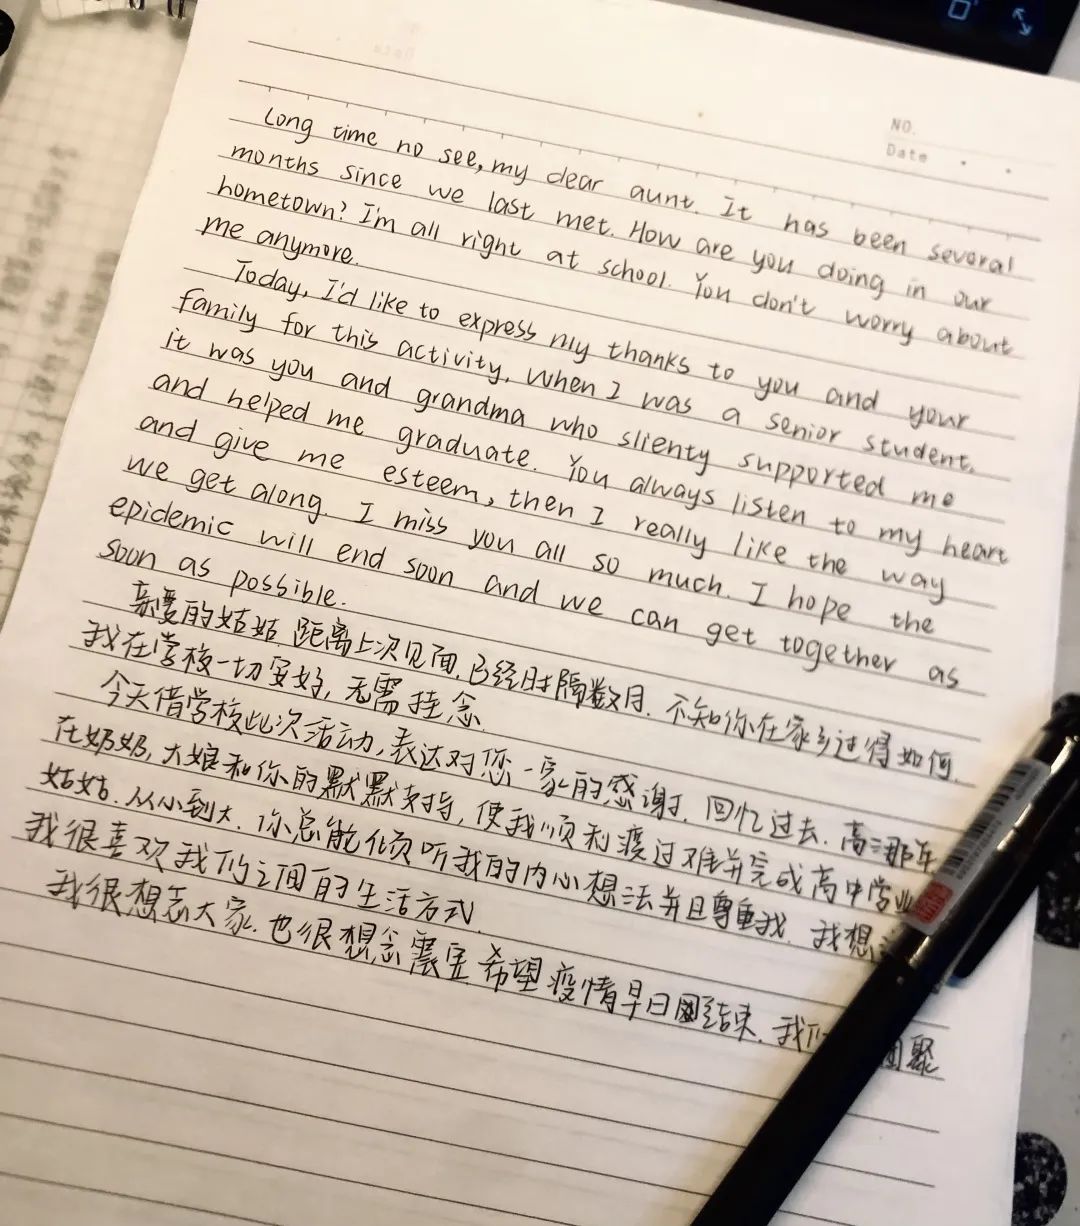 NO.
Date
Long time no see, my dear aunt. It has been several
months since we last met. How are you doing in our
hometown? I'm all right at school. You don't worry about
me anymore.
Today, I'd like to express my thanks to you and your
family for this activity, when I was a senior student,
it was you and grandma who slienty supported me
and helped me graduate. You always listen to my heart
and give me esteem, then I really like the way
we get along. I miss you all so much. I hope the
epidemic will end soon and we can get together as
soon as possible.
亲爱的姑姑 距离上次见面,已经时隔数月.不知你在家乡过得如何.
我在学校一切安好,无需挂念.
今天借学校此次活动,表达对您一家的感谢.回忆过去.高三那年
在奶奶,大娘和你的默默支持,使我顺利渡过难并完成高中学业
姑姑.从小到大.你总能倾听我的内心想法并且尊重我.我想
我很喜欢我们之间的生活方式.
我很想念大家.也很想念 希望疫情早日结束.我们 团聚